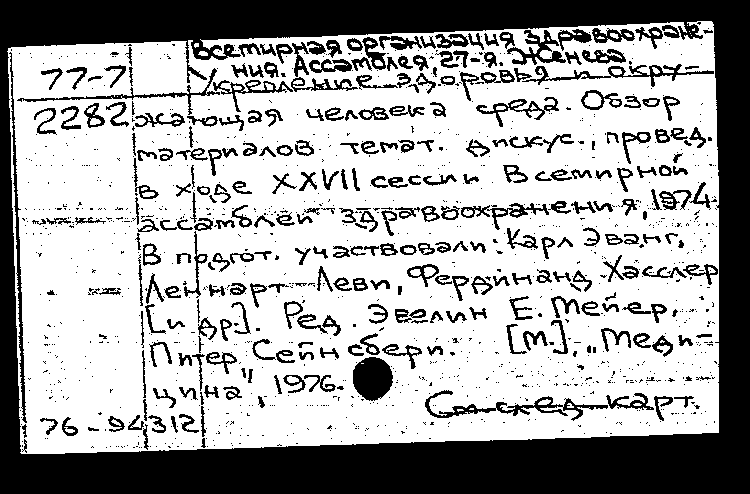 Всемирная организация здравоохране-
ния. Ассамблея, 27-я. Женева.
77-7 Укрепление здоровья и окру-
2282 жающая человека среда. Обзор
материалов темат. дискус., провед.
в ходе XXVII сессии Всемирной
ассамблеи здравоохранения, 1974.
В подгот. участвовали: Карл Эванг,
Леннарт Леви, Фердинанд Хасслер
[и др.]. Ред. Эвелин Е. Мейер,
Питер Сейнсбери. [М.], „Меди-
цина", 1976.
См след. карт.
76-94312